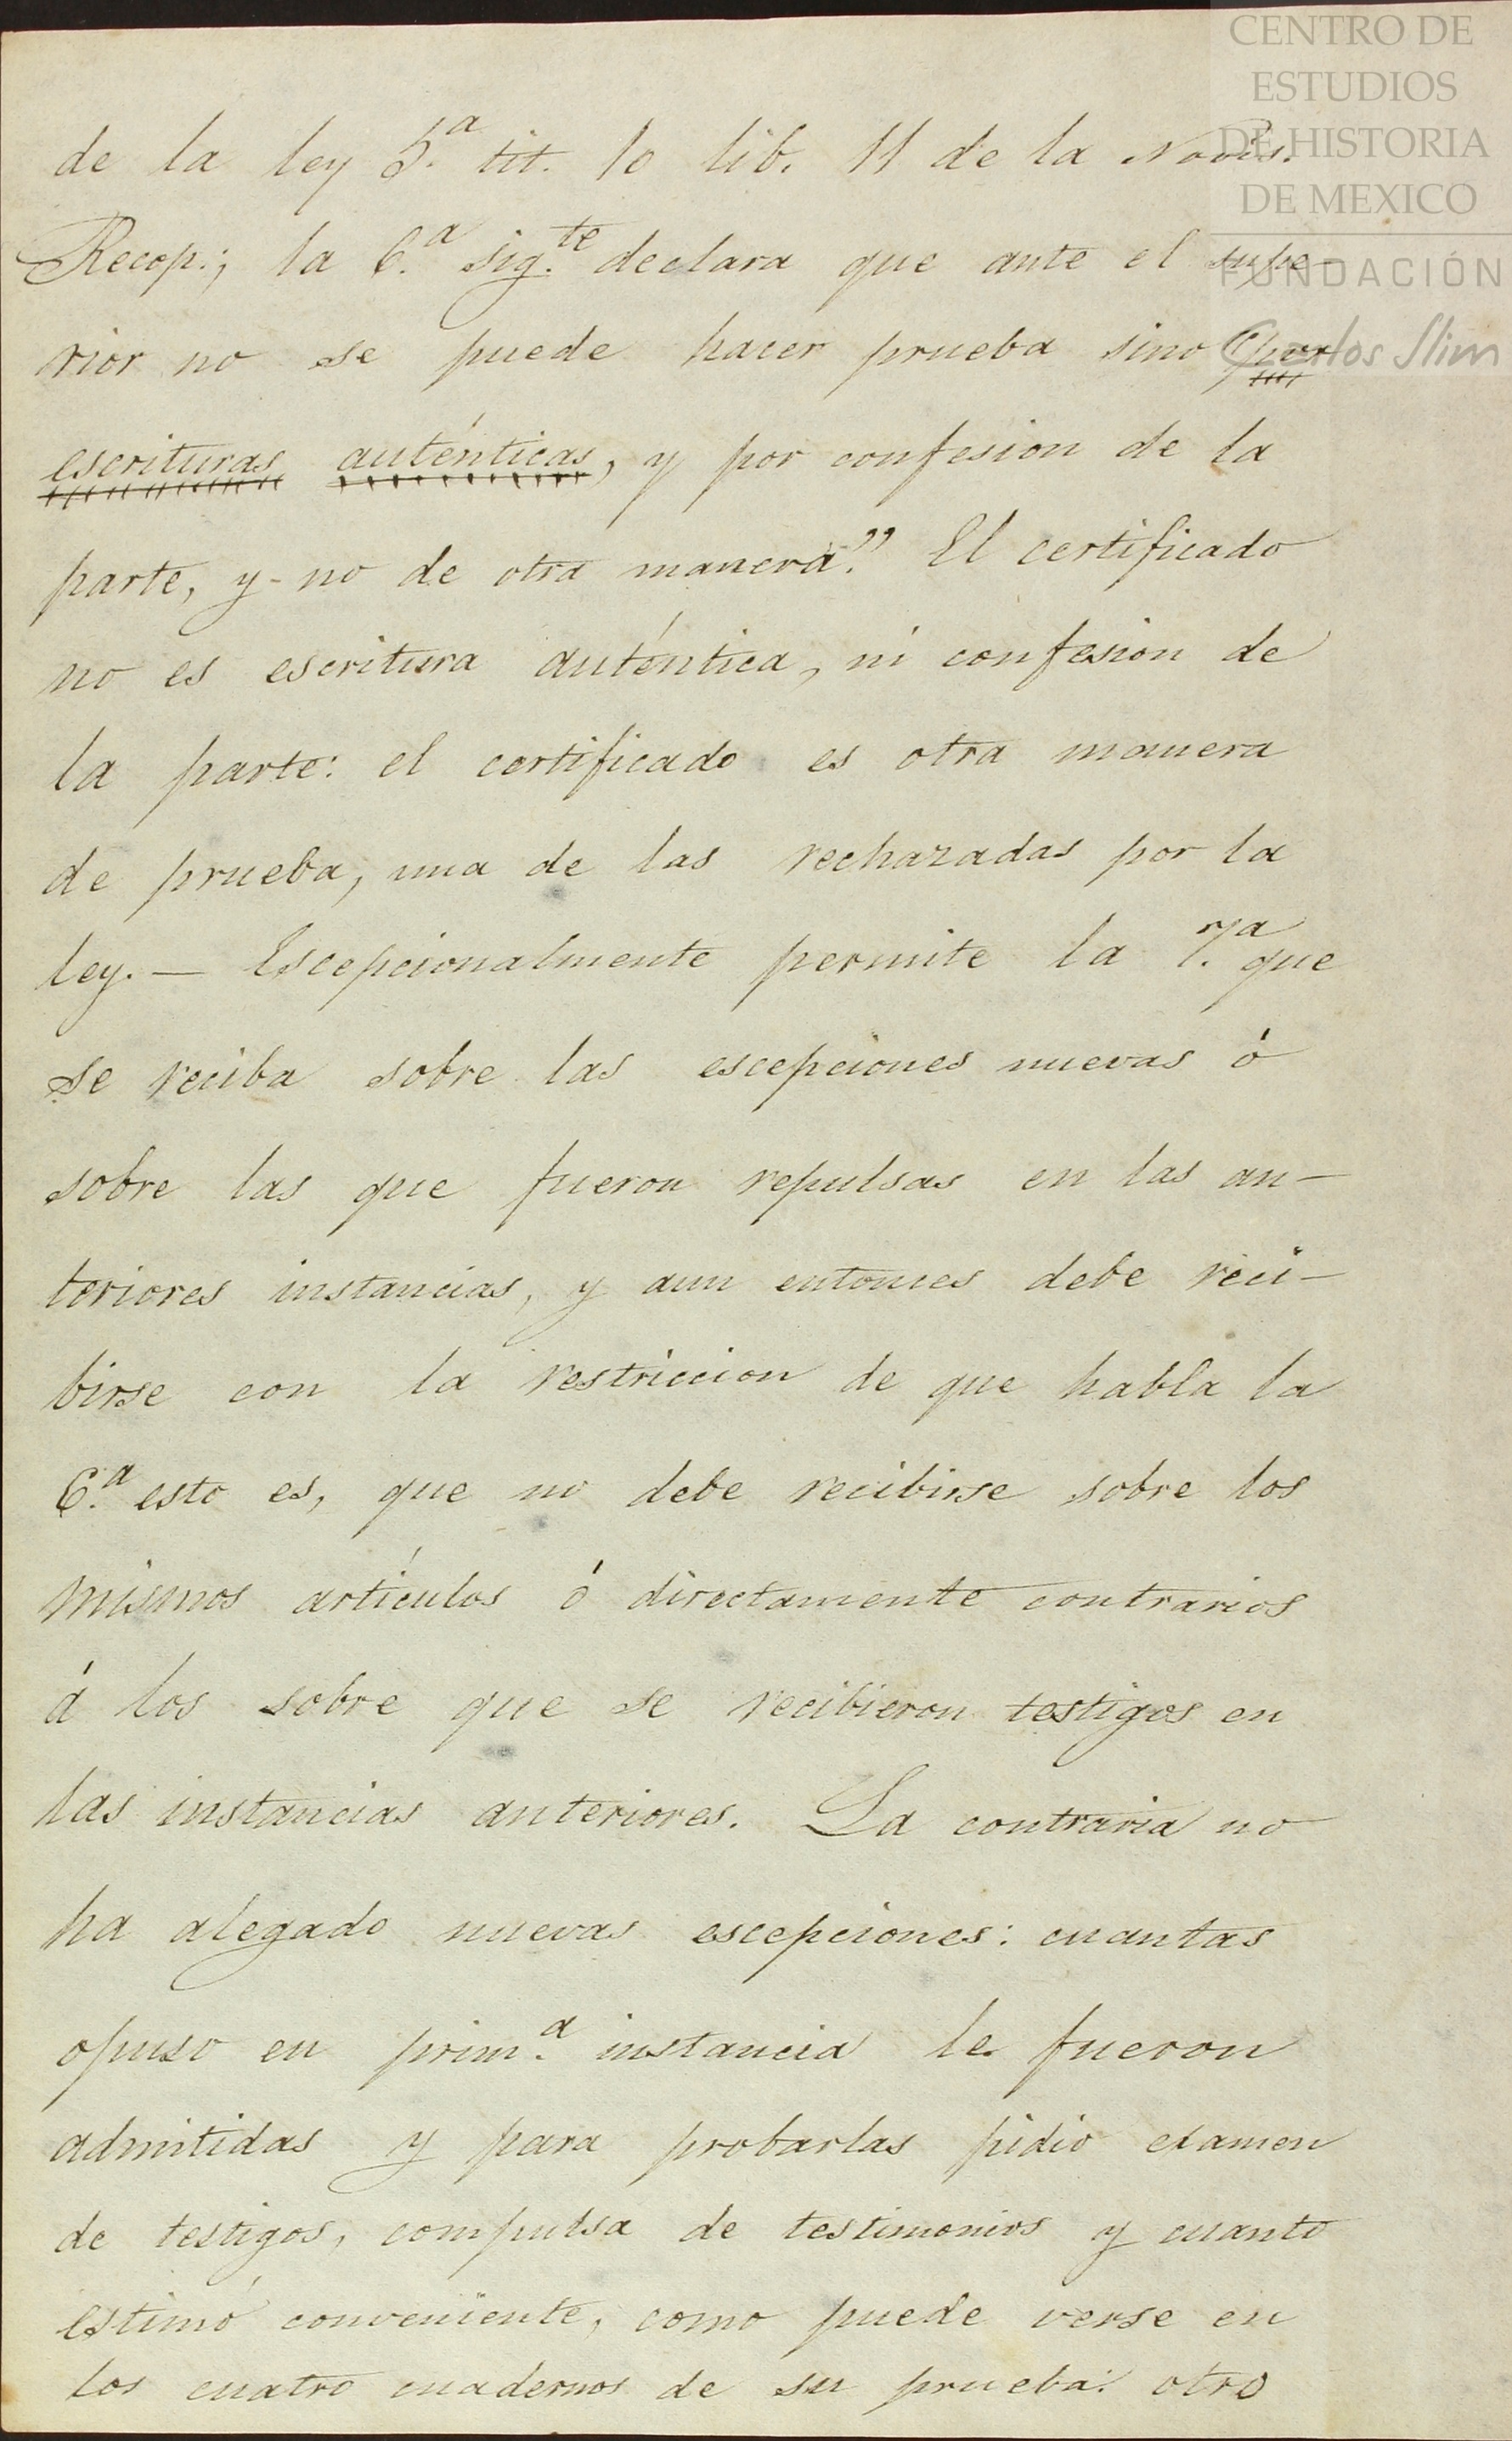 CENTRO DE
ESTUDIOS
DE HISTORIA
DE MEXICO
FUNDACIÓN
Carlos Slim
de la ley 5.ª tit. 10 lib. 11 de la Novís.
Recop.; la 6.ª sig.te declara que ante el supe-
rior no se puede hacer prueba sino "por
escrituras auténticas, y por confesion de la
parte, y no de otra manera." El certificado
no es escritura auténtica, ni confesion de
la parte: el certificado es otra manera
de prueba, una de las rechazadas por la
ley. — Escepcionalmente permite la 7.ª que
se reciba sobre las escepciones nuevas ó
sobre las que fueron repulsas en las an-
teriores instancias, y aun entonces debe reci-
birse con la restriccion de que habla la
6.ª esto es, que no debe recibirse sobre los
mismos artículos ó directamente contrarios
á los sobre que se recibieron testigos en
las instancias anteriores. La contraria no
ha alegado nuevas escepciones: cuantas
opuso en prim.ª instancia le fueron
admitidas y para probarlas pidió examen
de testigos, compulsa de testimonios y cuanto
estimó conveniente, como puede verse en
los cuatro cuadernos de su prueba: otro